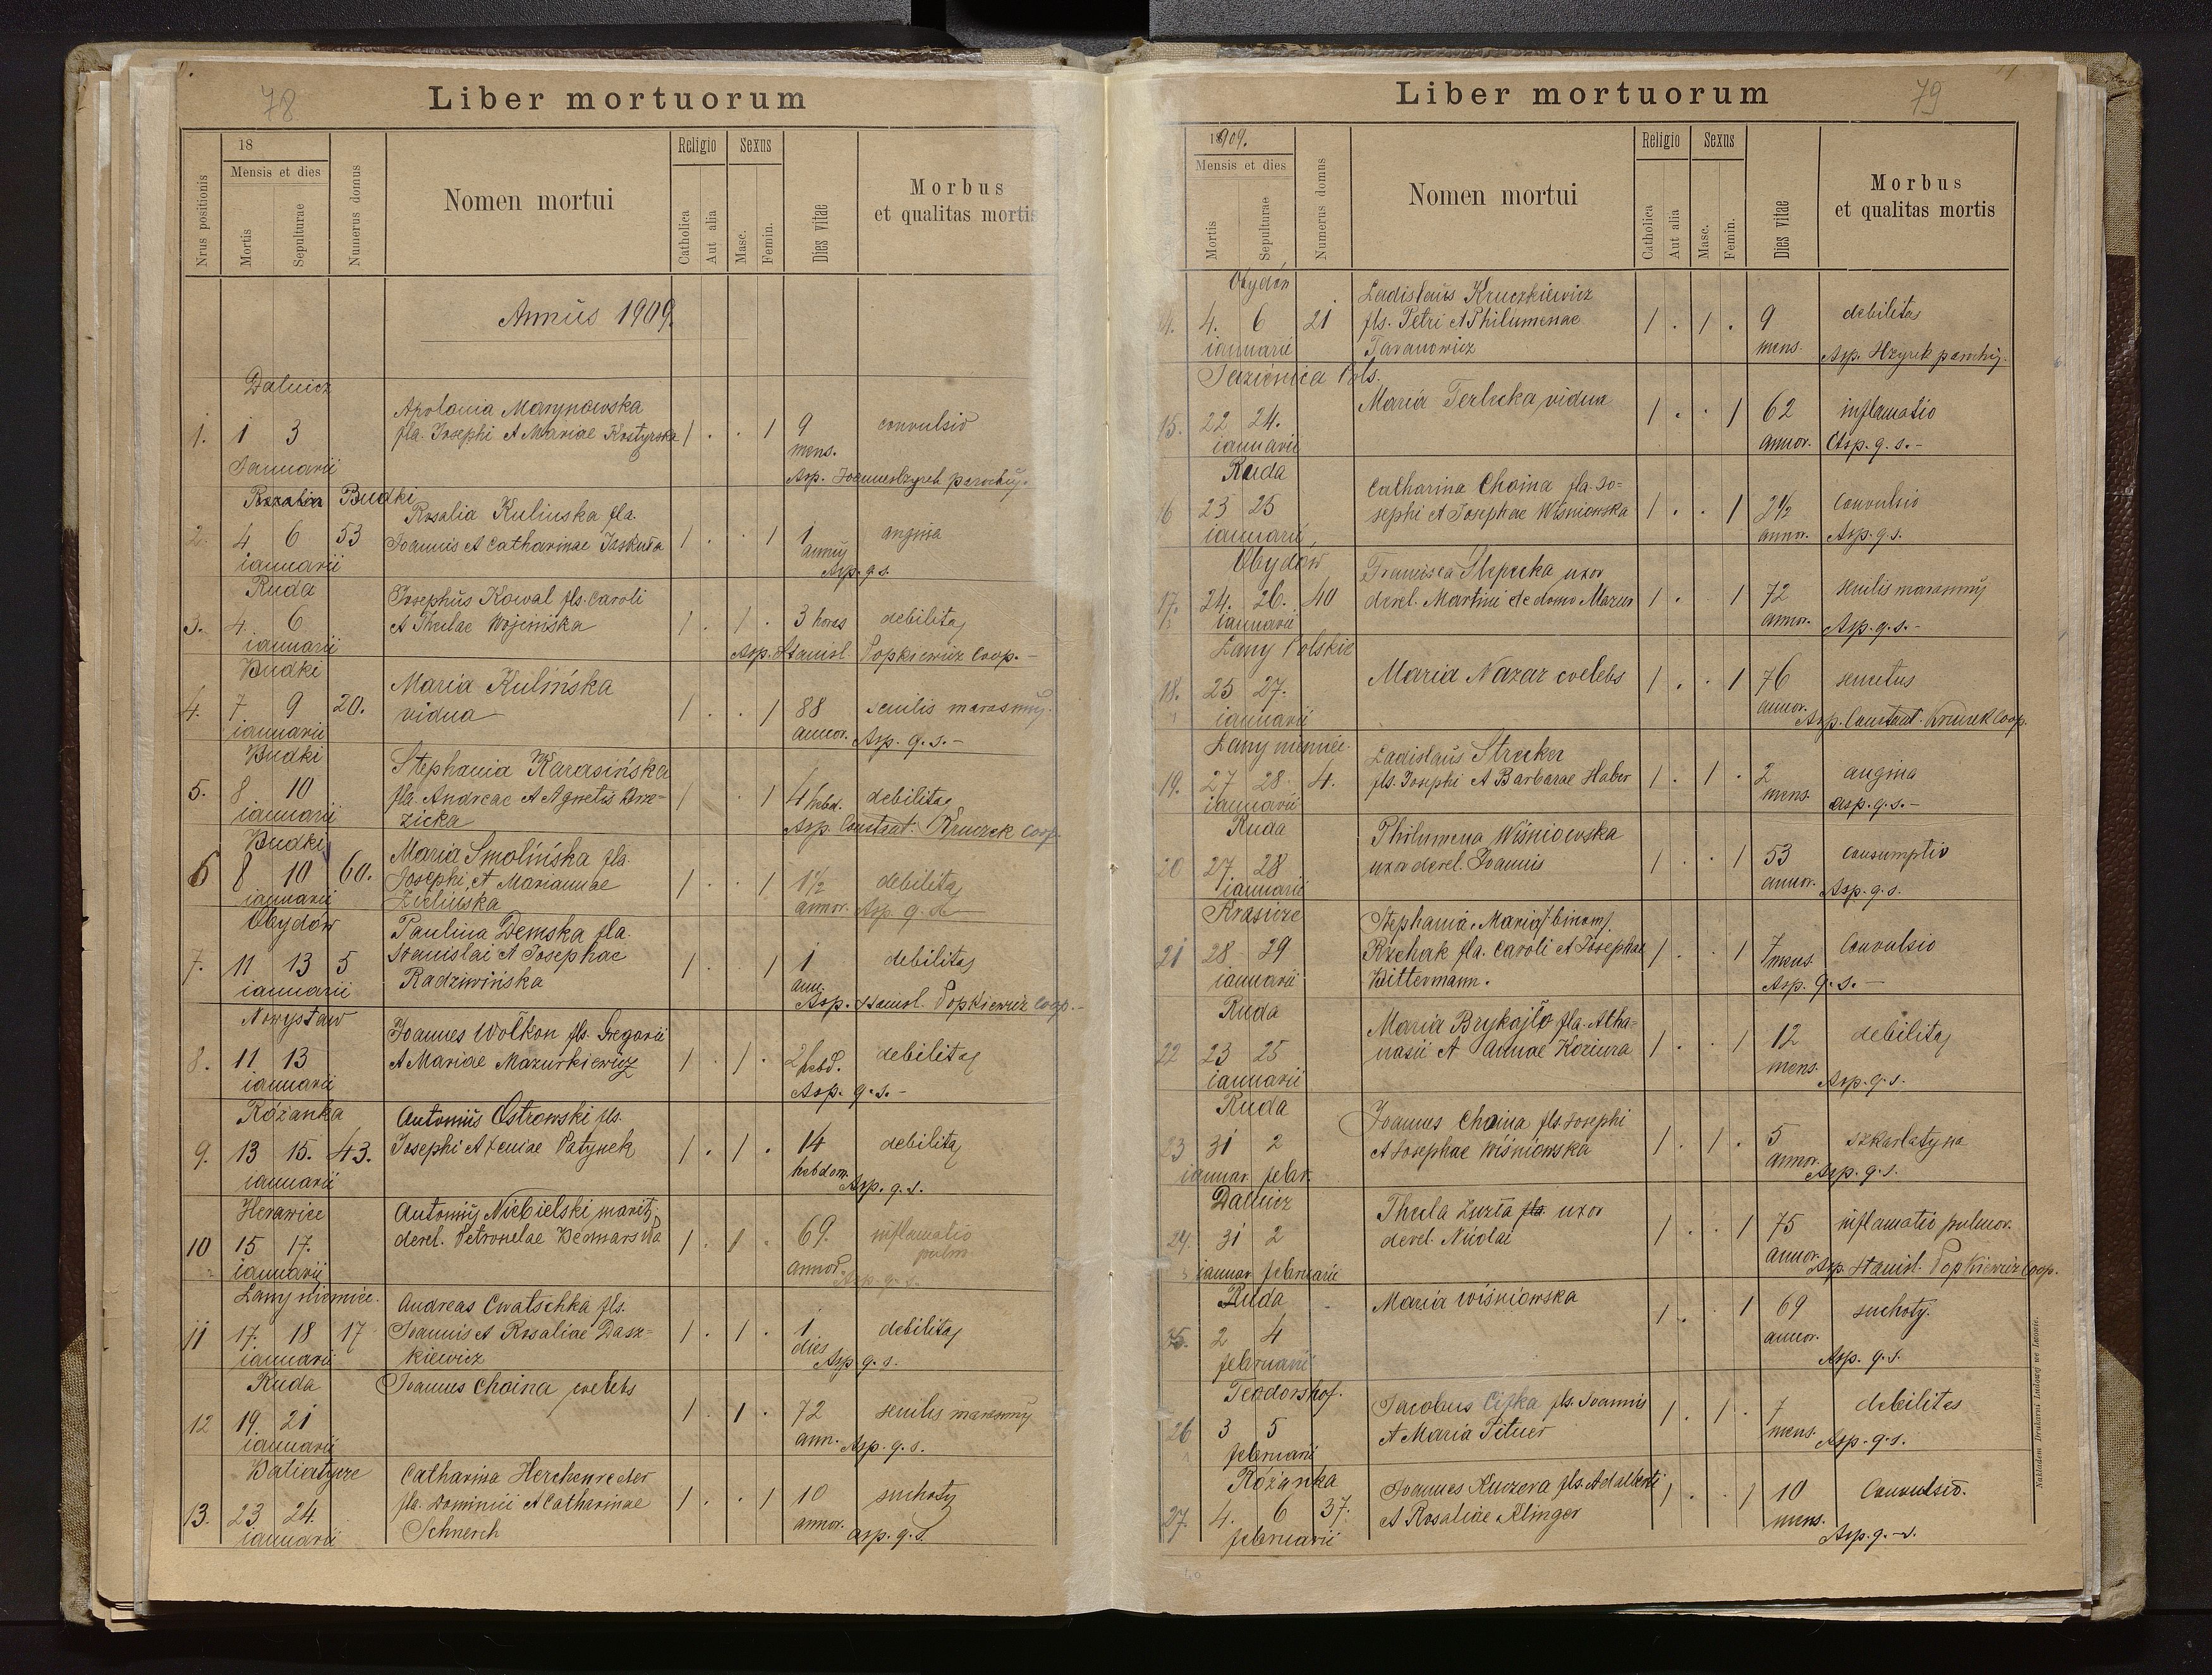 78
Liber mortuorum
Nrus positionis
18
Mensis et dies
Mortis
Sepulturae
Numerus domus
Nomen mortui
Religio
Catholica
Aut alia
Sexus
Masc.
Femin.
Dies vitae
Morbus
et qualitas mortis
Annus 1909.
Dalnicz
Apolonia Marynowska
1. 1 3 fla. Josephi et Mariae Kostyrska 1 . . 1 9 convulsio
Januarii mens.
Asp. Joannes parochus.
Budki
Rosalia Kulinska fla.
2. 4 6 53 Joannis et Catharinae Jaskuła 1 . . 1 1 angina
ianuarii annus
Asp. q. s.
Ruda
Josephus Kowal fls. Caroli
3. 4. 6 et Theclae 1 . 1 . 3 horas debilitas
ianuarii Asp. Stanisl. Popkiewicz Coop. -
Budki
Maria Kulińska
4. 7 9 20. vidua 1 . . 1 88 senilis marasmus.
ianuarii annor. Asp. q. s. -
Budki
Stephania Karasińska
5. 8 10 fla. Andreae et Agnetis Brze- 1 . 1 4 hebd. debilitas
ianuarii zicka Asp. Constant. Kruczek Coop.
Budki
Maria Smolińska fla.
6 8 10 60. Josephi et Mariannae 1 . . 1 1½ debilitas
ianuarii Zielinska annor. Asp. q. s.
Obydów
Paulina Demska fla.
Stanislai et Josephae
7. 11 13 5 Radziwińska 1 . 1 1 debilitas
ianuarii ann. Asp. Stanisl. Popkiewicz Coop. -
Nowystaw
Joannes Wołkon fls. Gregorii
8. 11 13 et Mariae Mazurkiewicz 1 . 1 . 2 hebd. debilitas
ianuarii Asp. q. s. -
Różanka
Antonius Ostrowski fls.
9. 13 15. 43. Josephi et Xeniae Patynek 1 . 1 . 14 debilitas
ianuarii hebdom. Asp. q. s.
Herawice
Antonius Niebielski marit.
10 15 17. derel. Petronelae Bednarska 1 . 1 . 69. inflamatio pulm
ianuarii annor. Asp. q. s.
Łany niemiec.
Andreas Cwatschka fls.
11 17. 18 17 Joannis et Rosaliae Dasz- 1 . 1 . 1 debilitas
ianuarii kiewicz dies Asp. q. s.
Ruda
Joannes Choina coelebs
12 19. 21 1 . 1 . 72 senilis marasmus
ianuarii ann. Asp. q. s.
Batiatycze
Catharina Herchenreder
13. 23 24. fla. Dominici et Catharinae 1 . . 1 10 suchoty
ianuarii Schnerch annor. Asp. q. s.
79
Liber mortuorum
1909.
Mensis et dies
Mortis
Sepulturae
Numerus domus
Nomen mortui
Religio
Catholica
Aut alia
Sexus
Masc.
Femin.
Dies vitae
Morbus
et qualitas mortis
Obydów
Ladislaus Kruczkiewicz
4. 6 21 fls. Petri et Philumenae 1 . 1 . 9 debilitas
ianuarii Taranowicz mens. Asp. parochus.
Jazienica Pols.
Maria Terlecka vidua
15. 22 24. 1 . . 1 62 inflamatio
ianuarii annor. Asp. q. s. -
Ruda
Catharina Choina fla. Jo=
16 23 25 sephi et Josephae Wiśniowska 1 . . 1 2½ Convulsio
ianuarii annor. Asp. q. s.
Obydów
Francisca uxor
17. 24. 26. 40 derel. Martini de domo Mazur 1 . 1 72 senilis marasmus
ianuarii annor. Asp. q. s. -
Łany Polskie
Maria Nazar coelebs
18. 25 27. 1 . . 1 76 senectus
ianuarii annor. Asp. Constant. Kruczek Coop.
Łany niemiec.
Ladislaus Strecker
19. 27 28 4. fls. Josephi et Barbarae Haber 1 . 1 . 2 angina
ianuarii mens. Asp. q. s. -
Ruda
Philumena Wiśniowska
20 27. 28 uxor derel. Joannis 1 . . 1 53 Consumptio
ianuarii annor. Asp. q. s.
Krasicze
Stephania, Maria /binom/.
21 28 29 Rzehak fla. Caroli et Josephae 1 . . 1 7 Convulsio
ianuarii Bittermann. mens Asp. q. s. -
Ruda
Maria Brykajło fla. Atha=
22 23 25 nasii et Annae Koziura 1 . . 1 12 debilitas
ianuarii mens. Asp. q. s.
Ruda
Joannes Choina fls. Josephi
23 31 2 et Josephae Wiśniowska 1 . 1 . 5 szkarlatyna
ianuar. febr. annor. Asp. q. s.
Dalnicz
Thecla Luzta fla. uxor
24. 31 2 derel. Nicolai 1 . . 1 75 inflamatio pulmor.
ianuar. februarii annor. Asp. Stanisl. Popkiewicz Coop.
Ruda
Maria Wiśniowska
25. 2 4 1 . . 1 69 suchoty.
februarii annor. Asp. q. s.
Teodorshof.
Jacobus Ciżka fls. Joannis
26 3 5 et Maria Pituer 1 . 1 . 7 debilitas
februarii mens. Asp. q. s.
Różanka
Joannes Kuczera fls. Adalberti
27. 4. 6 37. et Rosaliae Klinger 1 . . 1 10 Convulsio.
februarii mens. Asp. q. s.
Nakładem Drukarni Ludowej we Lwowie.